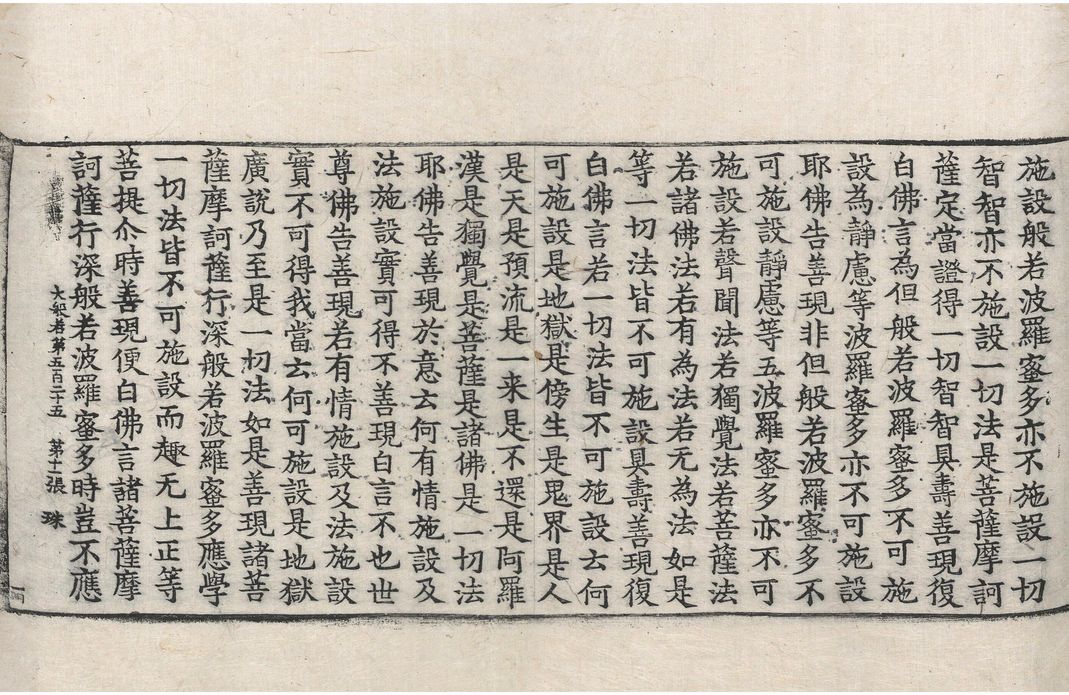 施設般若波羅蜜多亦不施設一切
智智亦不施設一切法是菩薩摩訶
薩定當證得一切智智具壽善現復
白佛言為但般若波羅蜜多不可施
設為靜慮等波羅蜜多亦不可施設
耶佛告善現非但般若波羅蜜多不
可施設靜慮等五波羅蜜多亦不可
施設若聲聞法若獨覺法若菩薩法
若諸佛法若有為法若无為法如是
等一切法皆不可施設具壽善現復
白佛言若一切法皆不可施設云何
可施設是地獄是傍生是鬼界是人
是天是預流是一来是不還是阿羅
漢是獨覺是菩薩是諸佛是一切法
耶佛告善現於意云何有情施設及
法施設實可得不善現白言不也世
尊佛告善現若有情施設及法施設
實不可得我當云何可施設是地獄
廣說乃至是一切法如是善現諸菩
薩摩訶薩行深般若波羅蜜多應學
一切法皆不可施設而趣无上正等
菩提尒時善現便白佛言諸菩薩摩
訶薩行深般若波羅蜜多時豈不應
大般若第五百二十五 第十一張 珠